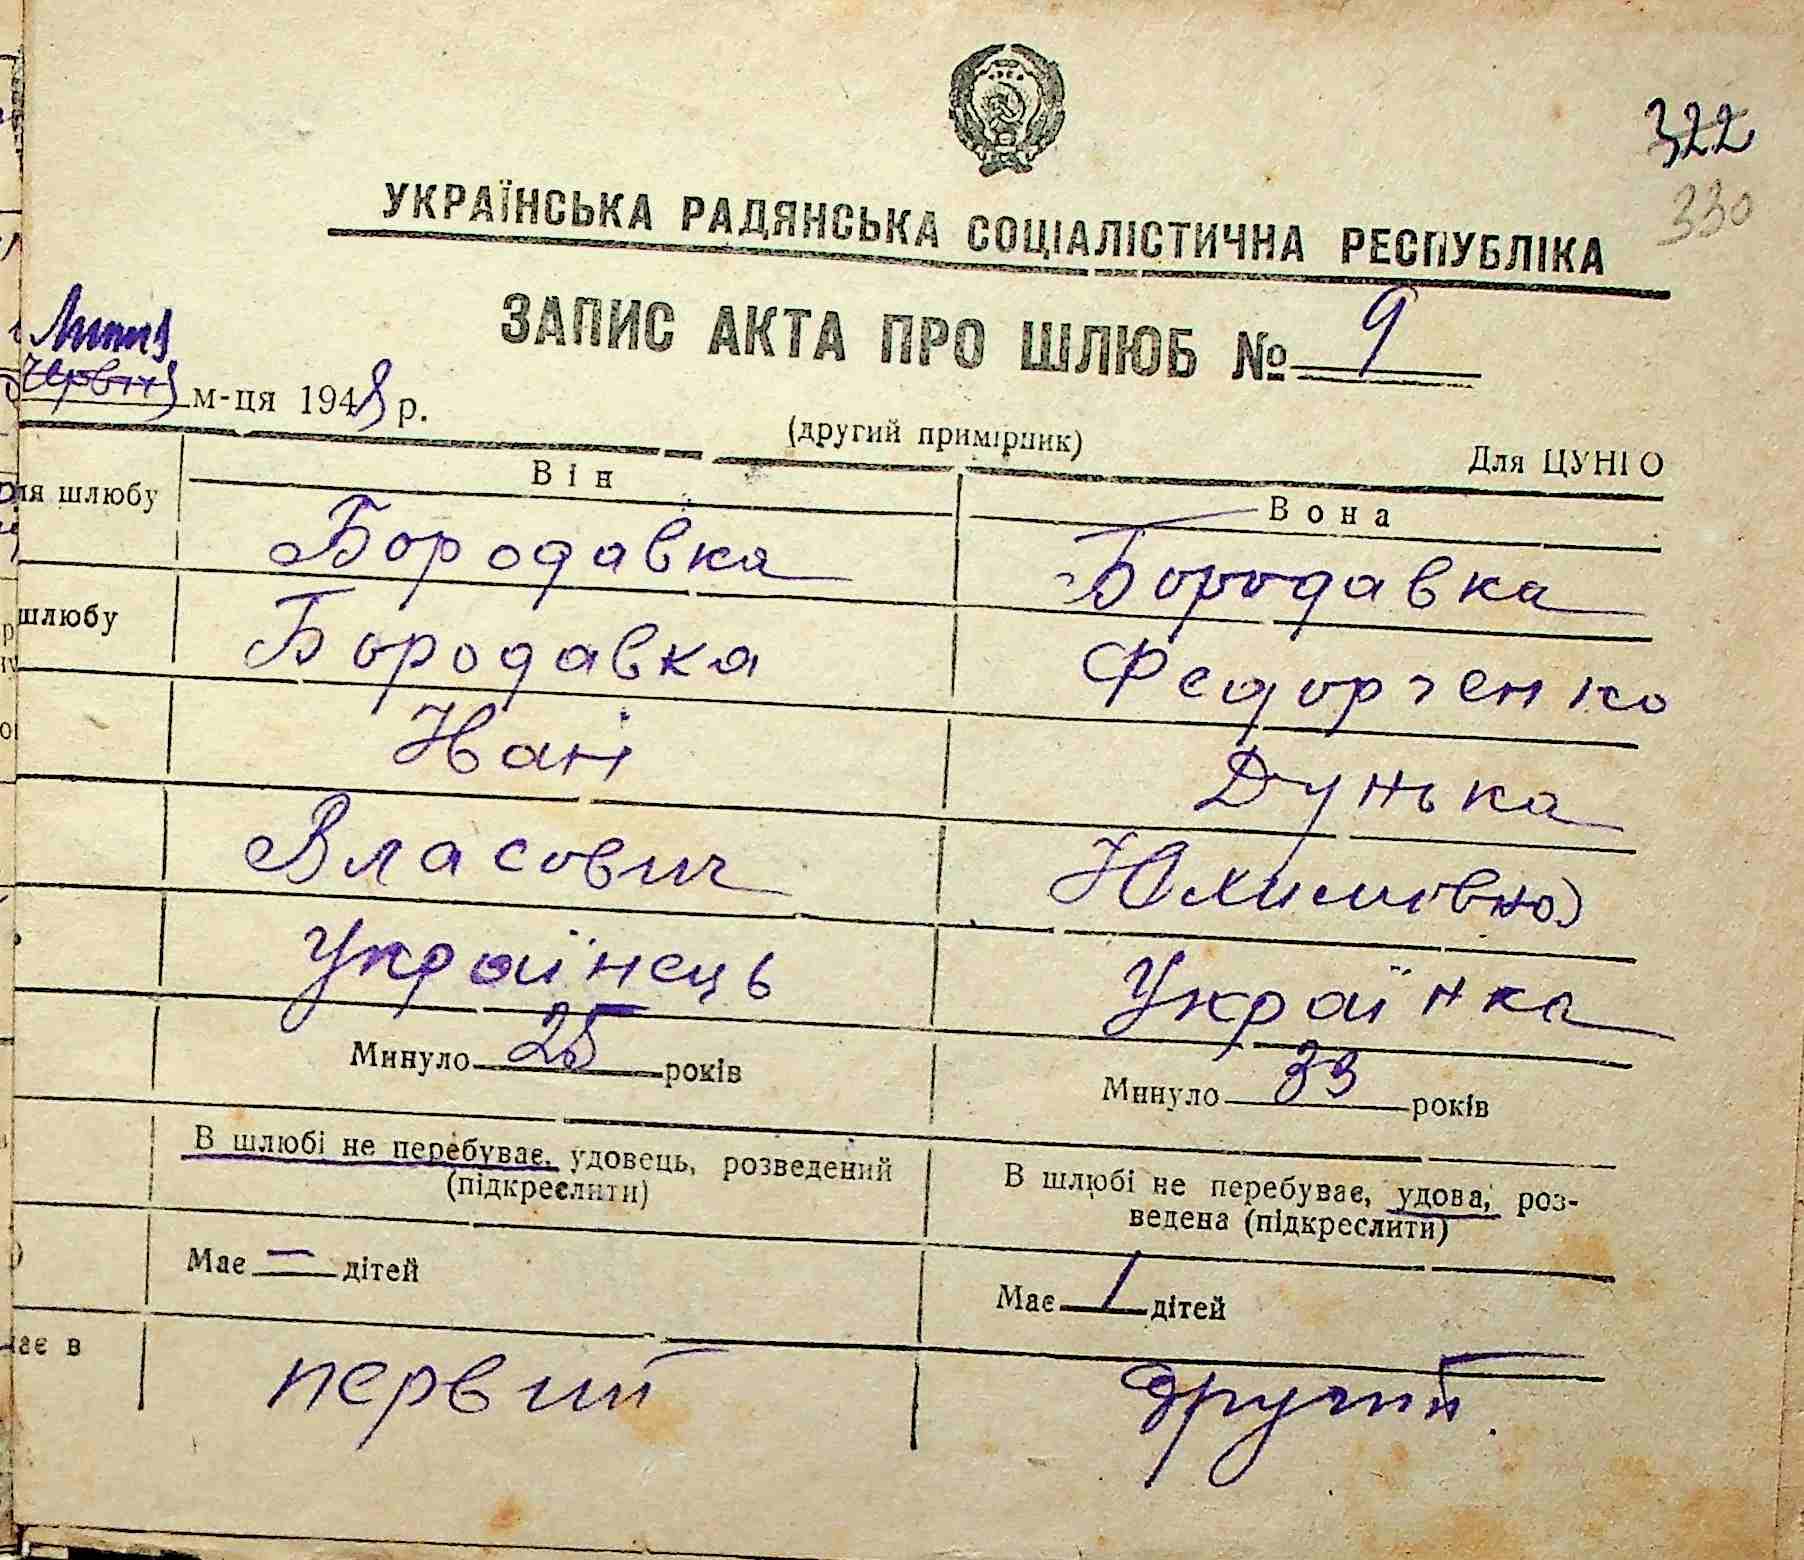 322
330
УКРАЇНСЬКА РАДЯНСЬКА СОЦІАЛІСТИЧНА РЕСПУБЛІКА
ЗАПИС АКТА ПРО ШЛЮБ № 9
Липня
червня м-ця 1948 р.
(другий примірник)
Для ЦУНГО
Він
Вона
ля шлюбу Бородавка Бородавка
шлюбу Бородавка Федорченко
Івані Дунька
Власович Юхимовна
Українець Українка
Минуло 25 років Минуло 33 років
В шлюбі не перебуває, удовець, розведений
(підкреслити)
В шлюбі не перебуває, удова, роз-
ведена (підкреслити)
Має — дітей Має 1 дітей
ає в первий другий.